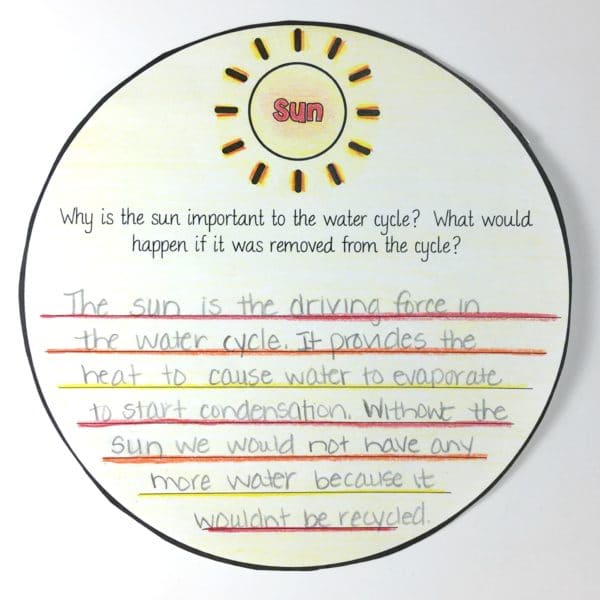 Sun
Why is the sun important to the water cycle? What would
happen if it was removed from the cycle?
The sun is the driving force in
the water cycle. It provides the
heat to cause water to evaporate
to start condensation. Without the
sun we would not have any
more water because it
wouldnt be recycled.